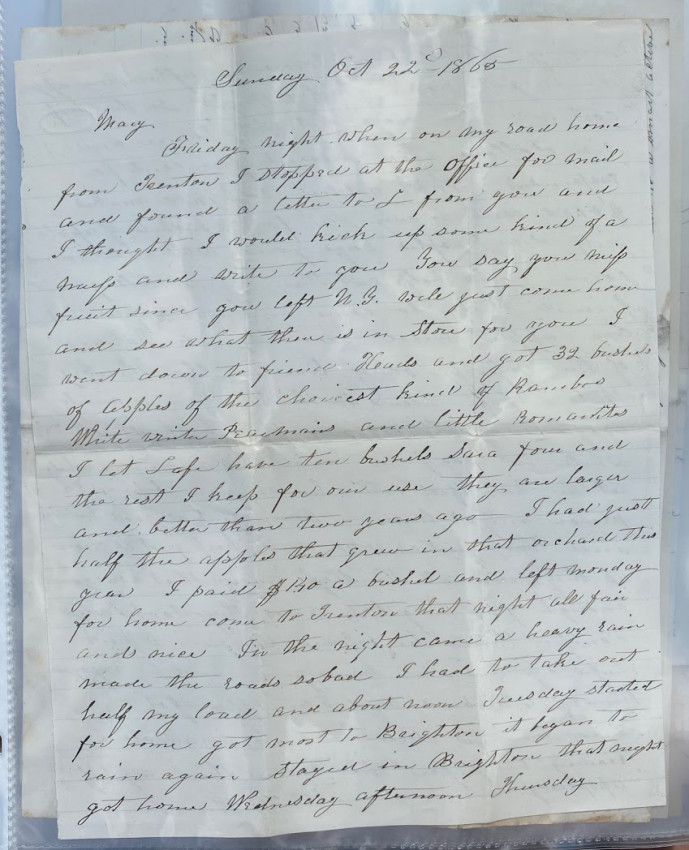 Sunday Oct 22d 1865
Mary
Friday night when on my road home
from Trenton I stopped at the Office for mail
and found a letter to L from you and
I thought I would kick up some kind of a
muss and write to you You say you miss
fruit since you left N.G. wele just come home
and see what ther is in Store for you I
went down to friend Heads and got 32 bushels
of apples of the choicest kind of Rambos
White winter Pearmains and little Romanites
I let Lafe have ten bushels Sara four and
the rest I keep for our use they are larger
and better than two years ago I had just
half the apples that grew in that orchard this
year I paid $1.40 a bushel and left monday
for home come to Trenton that night all fair
and nice In the night came a heavy rain
made the roads so bad I had to take out
half my load and about noon Tuesday started
for home got most to Brighton it began to
rain again Stayed in Brighton that night
got home Wednesday afternoon Thursday